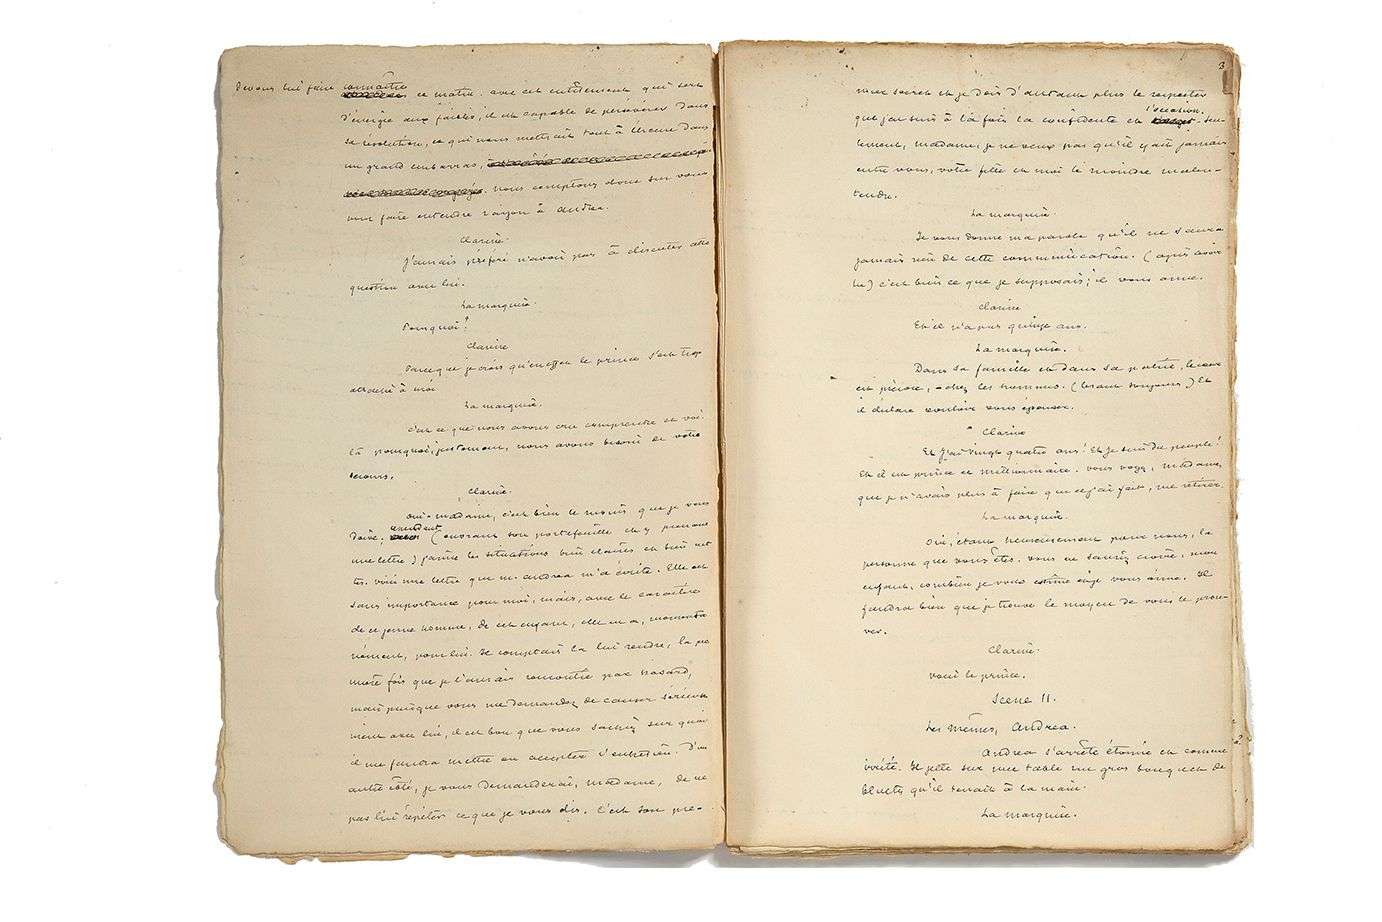 devons lui faire connaître
ce matin. avec cet entêtement qui sert
d'énergie aux faibles, il est capable de persévérer dans
sa résolution, ce qui nous mettrait tout à l'heure dans
un grand embarras,
nous comptons donc sur vous
pour faire entendre raison à Andrea.
Clarisse.
J'aimais préféré n'avoir pas à discuter cette
question avec lui.
La marquise.
Pourquoi?
Clarisse
Parce que je crois qu'en effet le prince s'est trop
attaché à moi
La marquise.
C'est ce que nous avons cru comprendre et voi-
là pourquoi, justement, nous avons besoin de votre
secours.
Clarisse.
Oui, madame, c'est bien le moins que je vous
doive, cependant (ouvrant son portefeuille et y prenant
une lettre) j'aime les situations bien claires et bien net-
tes. voici une lettre que m. Andrea m'a écrite. Elle est
sans importance pour moi, mais, avec le caractère
de ce jeune homme, de cet enfant, elle en a, momenta-
nément, pour lui. Je comptais la lui rendre, la pre-
mière fois que je l'aurais rencontré par hasard,
mais puisque vous me demandez de causer sérieuse-
ment avec lui, il est bon que vous sachiez sur quoi
il me faudra mettre ou accepter l'entretien. D'un
autre côté, je vous demanderai, madame, de ne
pas lui répéter ce que je vous dis. C'est son pre-
3
mier secret et je dois d'autant plus le respecter
que j'en suis à la fois la confidente et l'occasion. Seu-
lement, madame, je ne veux pas qu'il y ait jamais
entre vous, votre fille et moi le moindre malen-
tendu.
La marquise.
Je vous donne ma parole qu'il ne saura
jamais rien de cette communication. (après avoir
lu) c'est bien ce que je supposais; il vous aime.
Clarisse
Et il n'a pas quinze ans.
La marquise.
Dans sa famille et dans sa patrie, le cœur
est précoce, chez les hommes. (lisant toujours.) Et
il déclare vouloir vous épouser.
Clarisse
Et j'ai vingt quatre ans! Et je suis du peuple!
Et il est prince et millionnaire. vous voyez, madame,
que je n'avais plus à faire que ce j'ai fait, me retirer.
La marquise.
Oui, étant heureusement pour nous, la
personne que vous êtes. vous ne sauriez croire, mon
enfant, combien je vous estime et je vous aime. Il
faudra bien que je trouve le moyen de vous le prou-
ver.
Clarisse.
Voici le prince.
Scène II.
Les mêmes, Andrea.
Andrea s'arrête étonné et comme
irrité. Il jette sur une table un gros bouquet de
bluets qu'il tenait à la main.
La marquise.